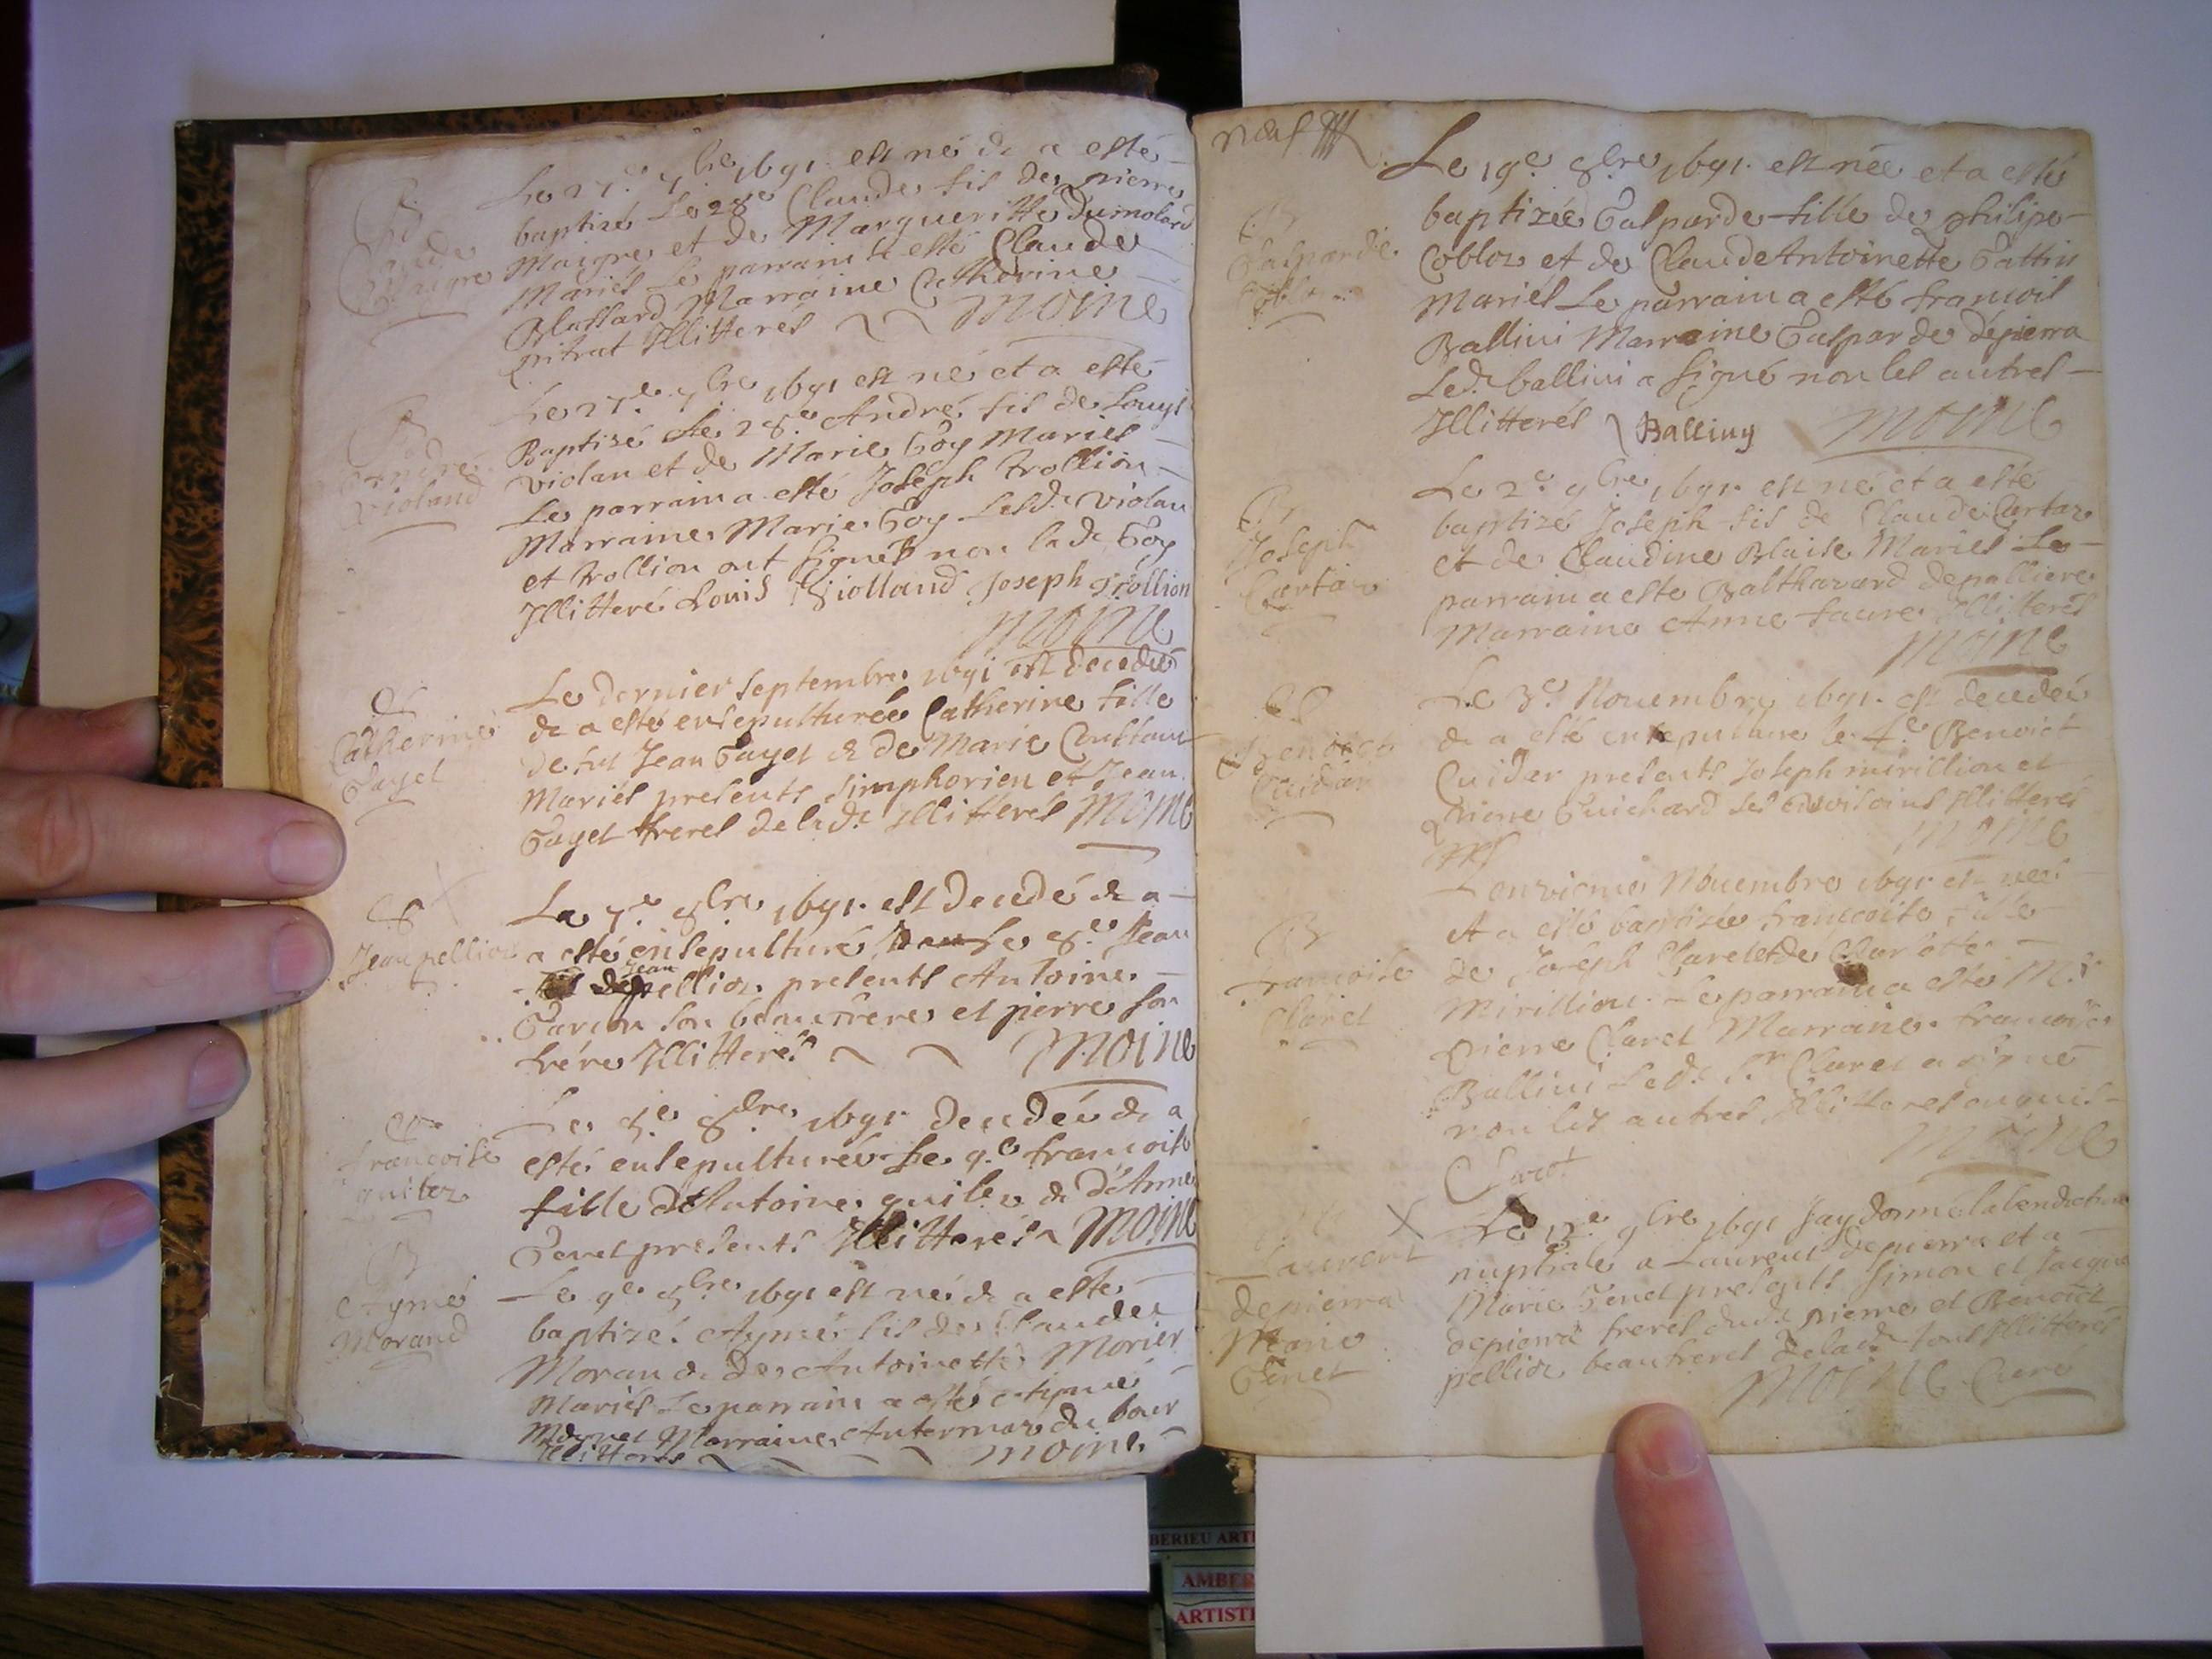 B
Claude
Maigre
Le 27.e 7bre 1691 est né & a esté
baptizé Le 28e Claude fils de pierre
Maigre et de Margueritte Dumolard
Mariés Le parrain a esté Claude
Marraine Catherine
pitrat Illitterés moine
B
André
violand
Le 27.e 7bre 1691 est né et a esté
Baptizé Le 28.e André fils de Louys
violan et de Marie Goy Mariés
Le parrain a esté Joseph trollion
Marraine Marie Goy Lesd. violan
et trollion ont signés non lade Goy
Illitteré Louis Violland Joseph trollion
moine
Catherine
Gayet
Le dernier septembre 1691 est decedée
& a esté ensepulturée Catherine fille
de fut Jean Gayet & de Marie
Mariés presents simphorien et Jean
Gayet freres de lade Illitterés moine
Jean pellioz
Le 7.e 8bre 1691. est decedé & a
a esté ensepulturé Le 8.e Jean
Jean
pellioz presents Antoine
son beaufrere et pierre son
frére Illitterés moine
francoise
quiloz
Le 8.e 8bre 1691 decedée & a
esté ensepulturée Le 9.e francoise
fille de Antoine & de Anne
Genet presents Illitterés moine
B
Aymé
Morand
Le 9e 8bre 1691 est né & a esté
baptizé Aymé fils de Claude
Moran & de Antoinette Morier
Mariés Le parrain a esté
Marraine du bour
Illitterés moine
neuf
B
Gasparde
Le 19e 8bre 1691. est née et a esté
baptizée Gasparde fille de philipe
Cobloz et de Claude Antoinette Gattin
Mariés Le parrain a esté francois
Ballini Marraine Gasparde depierra
Led. ballini a signé non les autres
Illitterés Balliny moine
B
Joseph
Cartaz
Le 2e 9bre 1691. est né et a esté
baptizé Joseph fils de Claude Cartaz
et de Claudine Blaise Mariés Le
parrain a esté Balthazard depalliere
Marraine Anne faure Illitterés
moine
Benoict
Cuider
Le 3e Nouembre 1691. est decedé
& a esté ensepulturé le 4e Benoict
Cuider presents Joseph mirillion et
pierre Guichard ses voisins Illitterés
moine
B
francoise
Claret
Lonzieme Nouembre 1691 est née
et a esté baptizée francoise fille
de Joseph Claret et de Charlotte
Mirillion. Le parrain a esté M.r
pierre Claret Marraine francoise
Ballini Led. S.r Claret a signé
non les autres Illitterés enquis
moine
Claret
X
Laurent
depierra
Marie
Genet
Le 12e 9bre 1691 Jay donné la benediction
nuptiale a Laurent depierra et a
Marie Genet presents simon et Jacque
depierra freres dud. pierre et Benoict
pellioz beaufreres de lade tous Illitterés
moine Curé
AMBERIEU ARTI
AMBER
ARTISTI